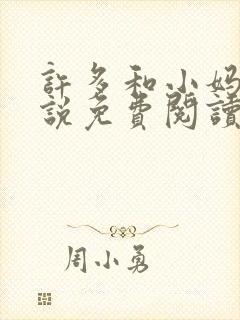 許多和小媽
說免費閱讀
周小勇